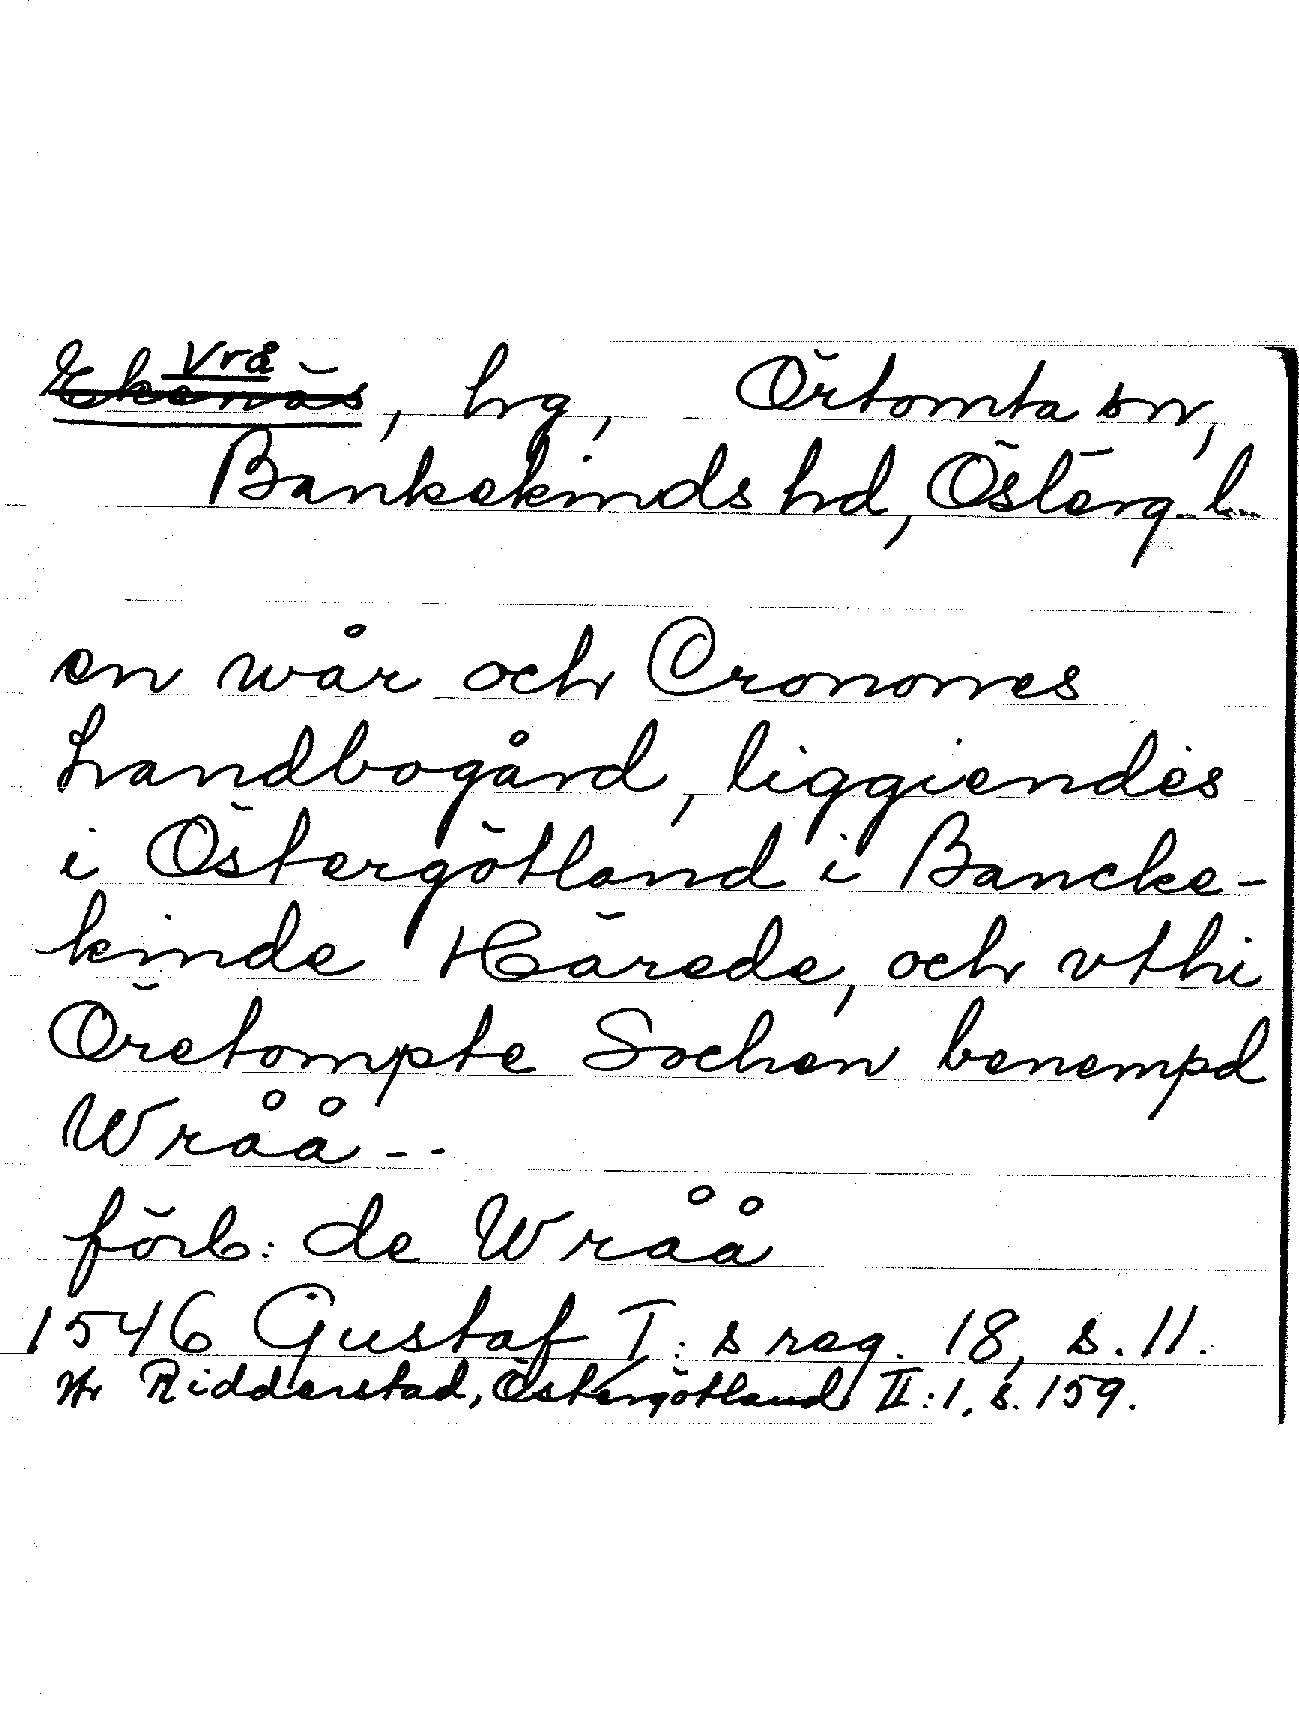 Vrå
Ekenäs, hrg, Örtomta sn,
Bankekinds hd, Österg. l.
en wår och Cronones
Landbogård, liggiendes
i Östergötland i Bancke-
kinde Härede, och vthi
Öretompte Sochen benempd
Wråå --
förb: de Wråå
1546 Gustaf I:s reg. 18, s. 11.
Hr Ridderstad, Östergötland II:1, s. 159.